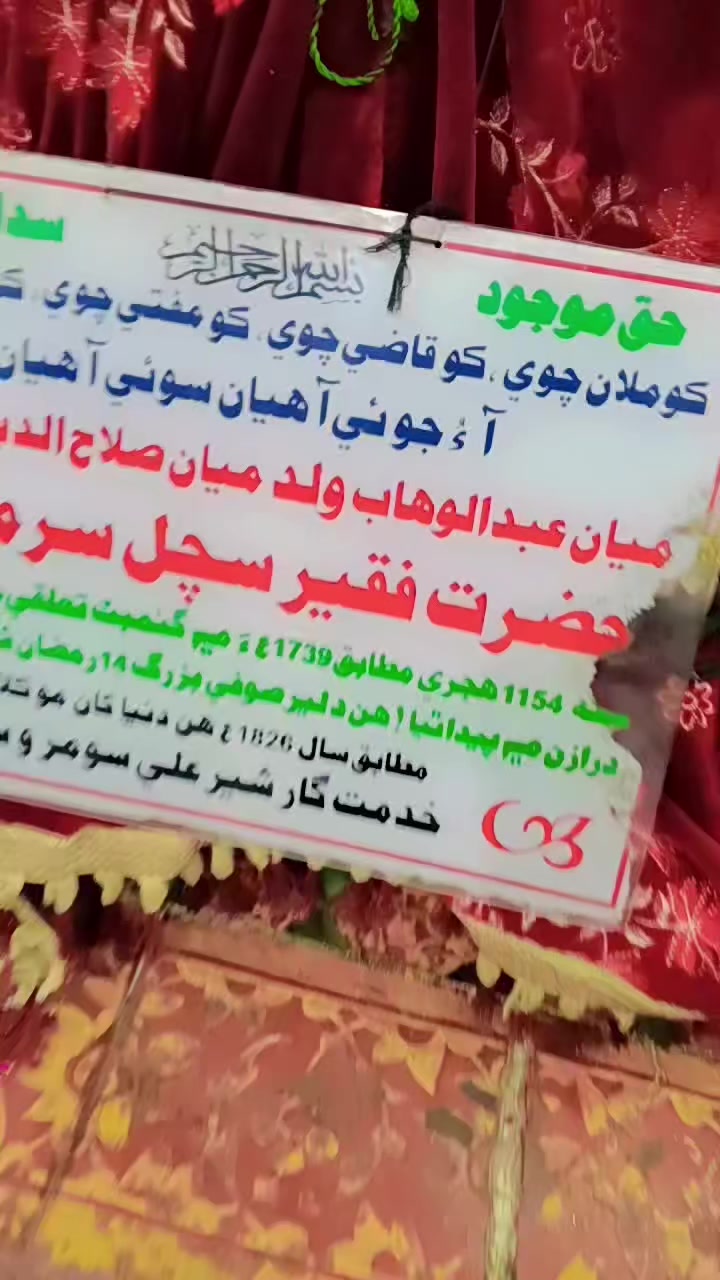 بسم الله الرحمن الرحيم
حق موجود
ڪو ملان چوي، ڪو قاضي چوي، ڪو مفتي چوي،
آءُ جوئي آهيان سوئي آهيان
ميان عبدالوهاب ولد ميان صلاح
حضرت فقير سچل
سنه 1154 هجري مطابق 1739ع ۾ گمبٽ تعلقي
درازن ۾ پيدا ٿيا هن دلير صوفي بزرگ 14 رمضان
مطابق سال 1826ع هن دنيا تان
خدمت گار شير علي سومرو